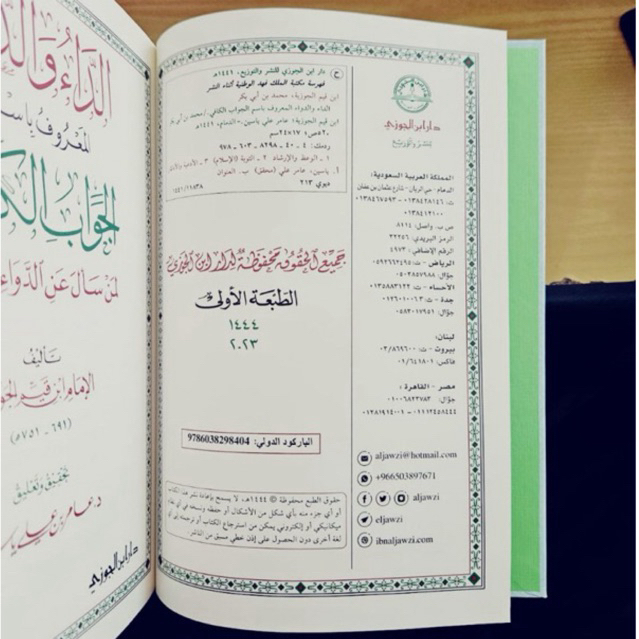 الداء والد
المعروف باسم
الجواب الك
لمن سأل عن الدواء
تأليف
الإمام ابن قيم الجو
(٦٩١ - ٧٥١هـ)
تحقيق وتعليق
د. عامر بن علي ياس
دار ابن الجوزي
دار ابن الجوزي للنشر والتوزيع، ١٤٤١هـ
فهرسة مكتبة الملك فهد الوطنية أثناء النشر
ابن قيم الجوزية، محمد بن أبي بكر
الداء والدواء المعروف باسم الجواب الكافي./ محمد بن أبي بكر
ابن قيم الجوزية؛ عامر علي ياسين.- الدمام، ١٤٤١هـ
٥٢٠ص؛ ١٧×٢٤سم
ردمك: ٤ - ٤٠ - ٨٢٩٨ - ٦٠٣ - ٩٧٨
١ - الوعظ والإرشاد ٢ - التوبة (الإسلام) ٣ - الأدعية والأذكار
أ. ياسين، عامر علي (محقق) ب. العنوان
ديوي ٢١٣
١٤٤١/١١٥٣٨
جميع الحقوق محفوظة لدار ابن الجوزي
الطبعة الأولى
١٤٤٤
٢٠٢٣
الباركود الدولي: 9786038298404
حقوق الطبع محفوظة © ١٤٤٤هـ، لا يسمح بإعادة نشر هذا الكتاب
أو أي جزء منه بأي شكل من الأشكال أو حفظه ونسخه في أي نظام
ميكانيكي أو إلكتروني يمكن من استرجاع الكتاب أو ترجمته إلى أي
لغة أخرى دون الحصول على إذن خطي مسبق من الناشر.
دار ابن الجوزي
للنشر والتوزيع
المملكة العربية السعودية:
الدمام - حي الريان - شارع عثمان بن عفان
ت: ٠١٣٨٤٢٨١٤٦ - ٠١٣٨٤٦٧٥٩٣
ص ب. واصل: ٨١١٤
الرمز البريدي: ٣٢٢٥٦
الرقم الإضافي: ٤٩٧٣
الرياض - ت: ٠٥٩٢٦٦٢٤٩٥
جوّال: ٠٥٠٣٨٥٧٩٨٨
الأحساء - ت: ٠١٣٥٨٨٣١٢٢
جدة - ت: ٠١٢٦٨١٠٠٦٣
جوّال: ٠٥٨٣٠١٧٩٥١
لبنان:
بيروت - ت: ٠٣/٨٦٩٦٠٠
فاكس: ٠١/٦٤١٨٠١
مصر - القاهرة:
جوّال: ٠١٠٠٦٨٢٣٧٨٣
٠١١١٢٤٥٨٤٤٤ - ٠١٢٨١٩١٤٠٠١
aljawzi@hotmail.com
+966503897671
aljawzi
eljawzi
ibnaljawzi.com